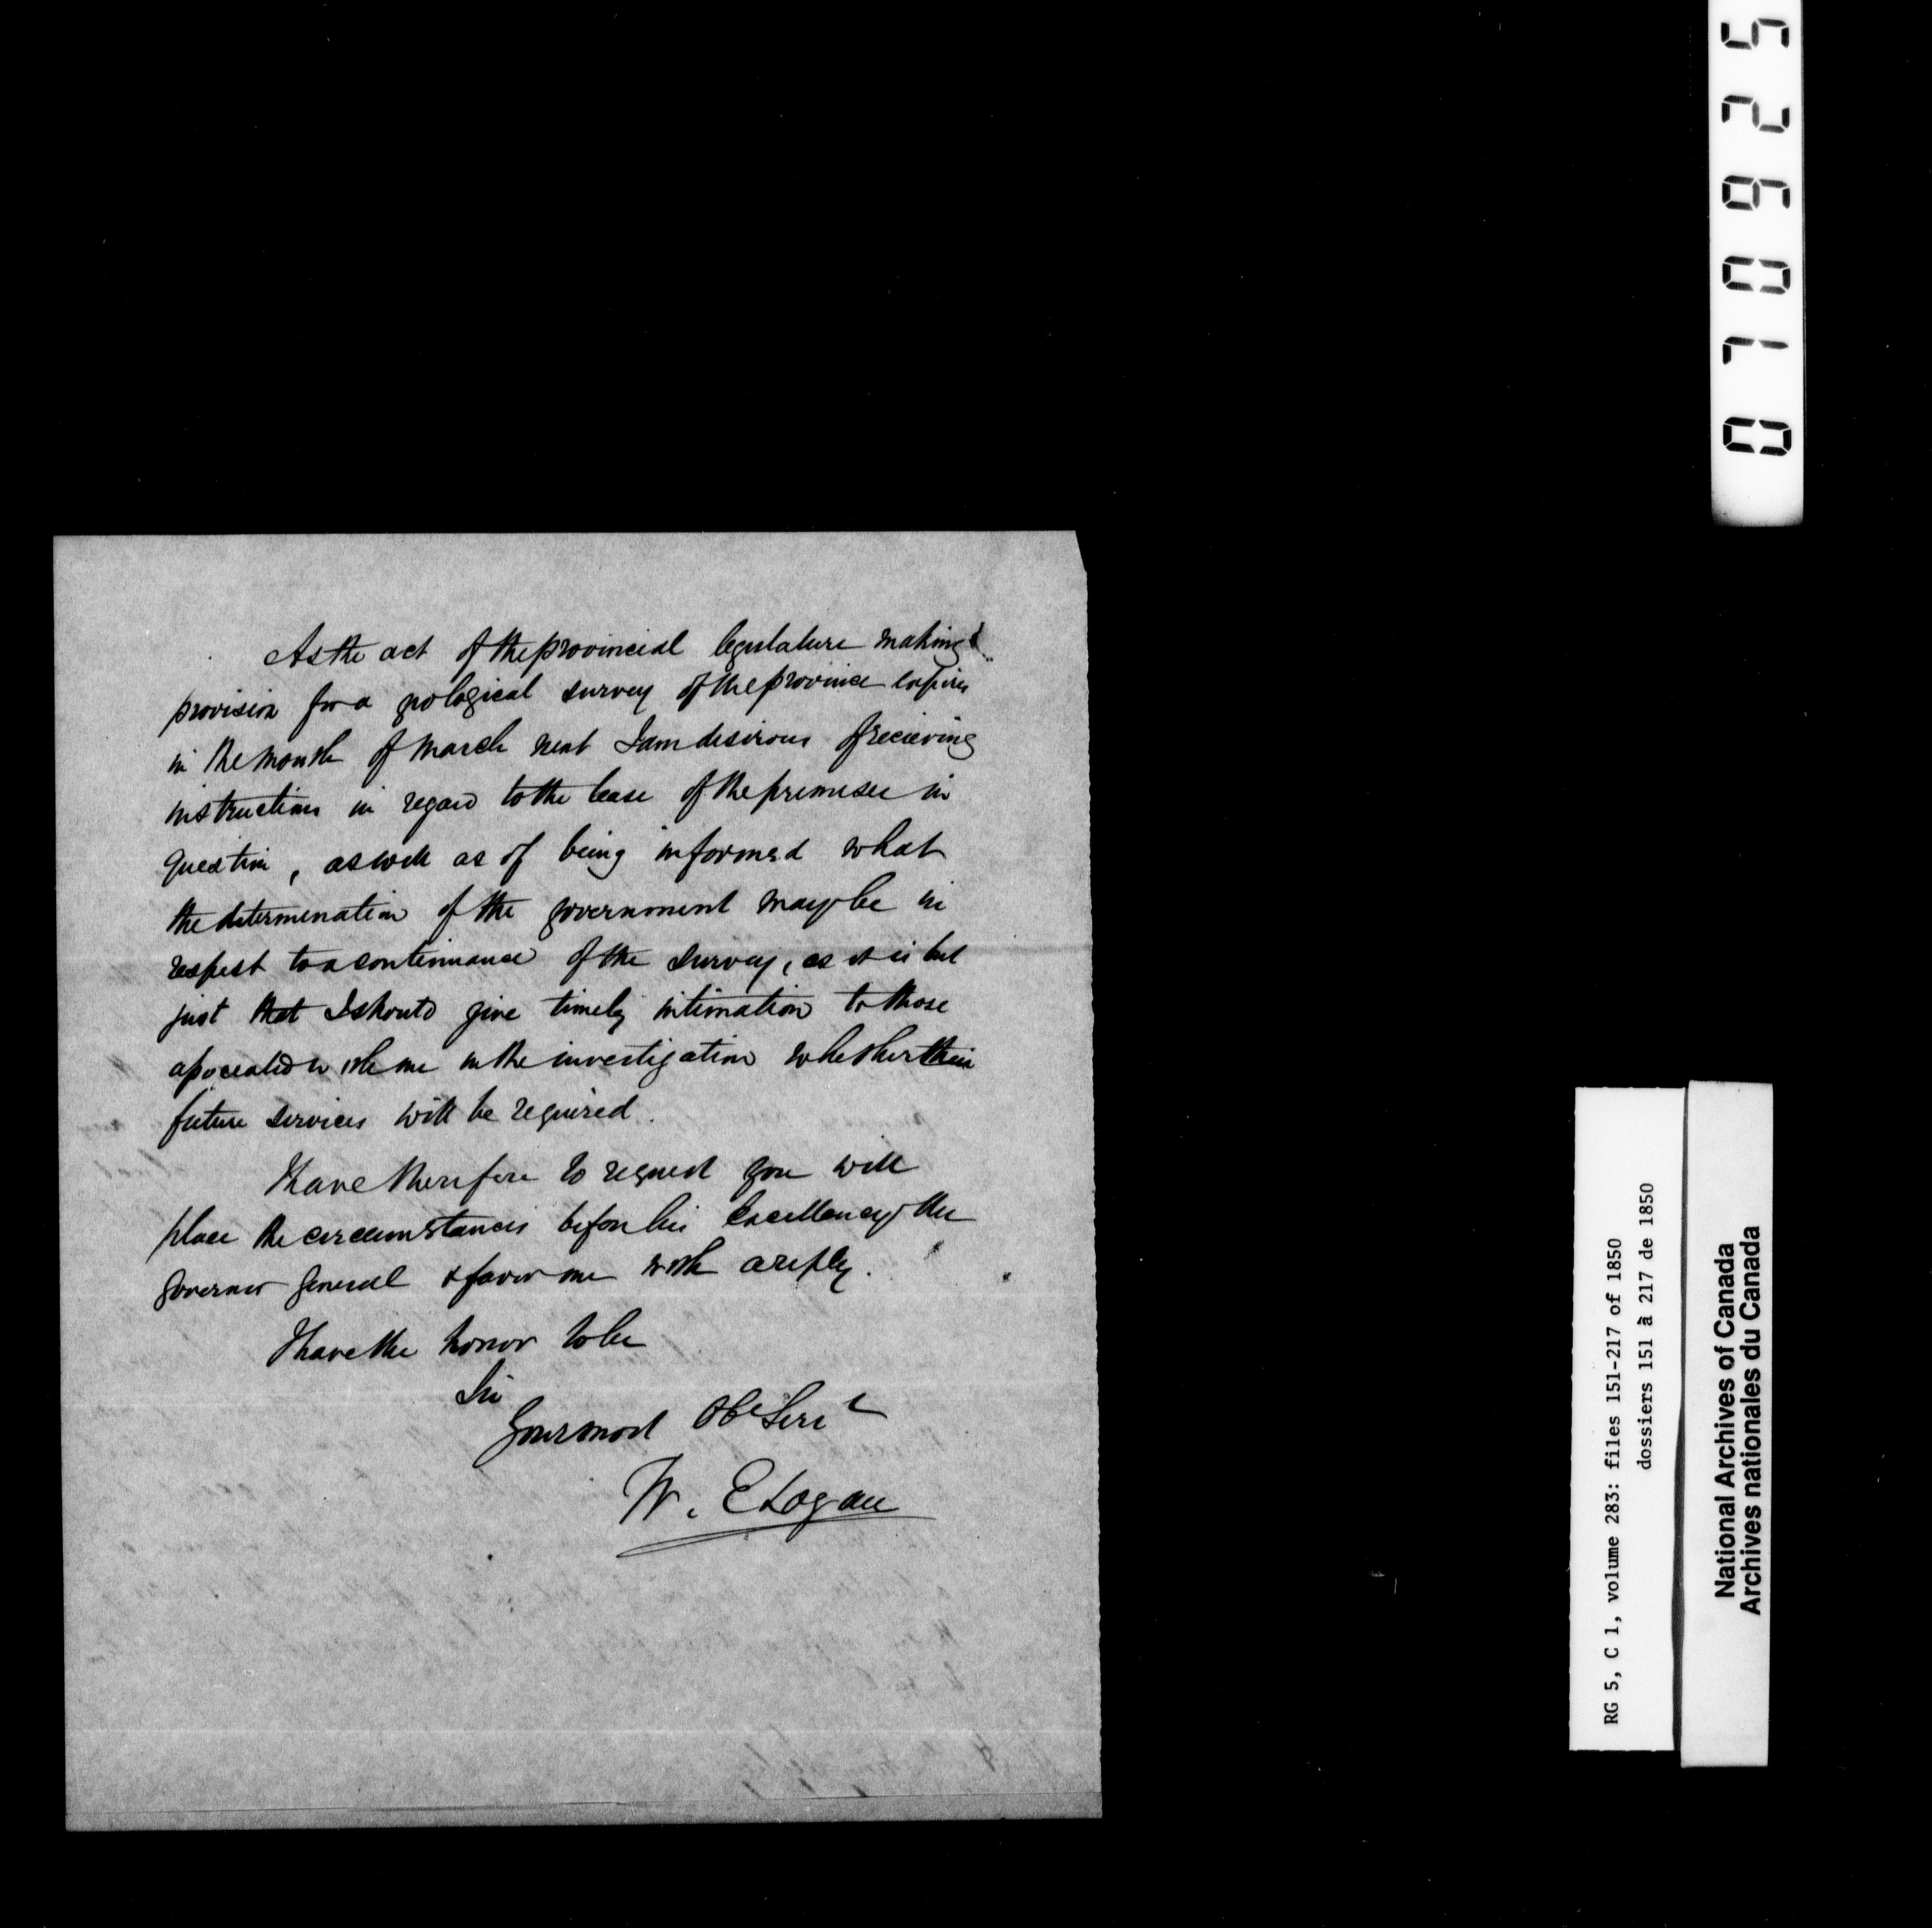 As the act of the provincial legislature making
provision for a geological survey of the province expires
in the month of March next I am desirous of receiving
instructions in regard to the lease of the premises in
question, as well as of being informed what
the determination of the government may be in
respect to a continuance of the survey, as it is but
just that I should give timely intimation to those
associated with me in the investigation whether their
future services will be required.
I have therefore to request you will
place the circumstances before his Excellency the
Governor General & favor me with a reply.
I have the honor to be
Sir
Your most Obt Servt
W. E Logan
RG 5, C 1, volume 283: files 151-217 of 1850
dossiers 151 à 217 de 1850
National Archives of Canada
Archives nationales du Canada